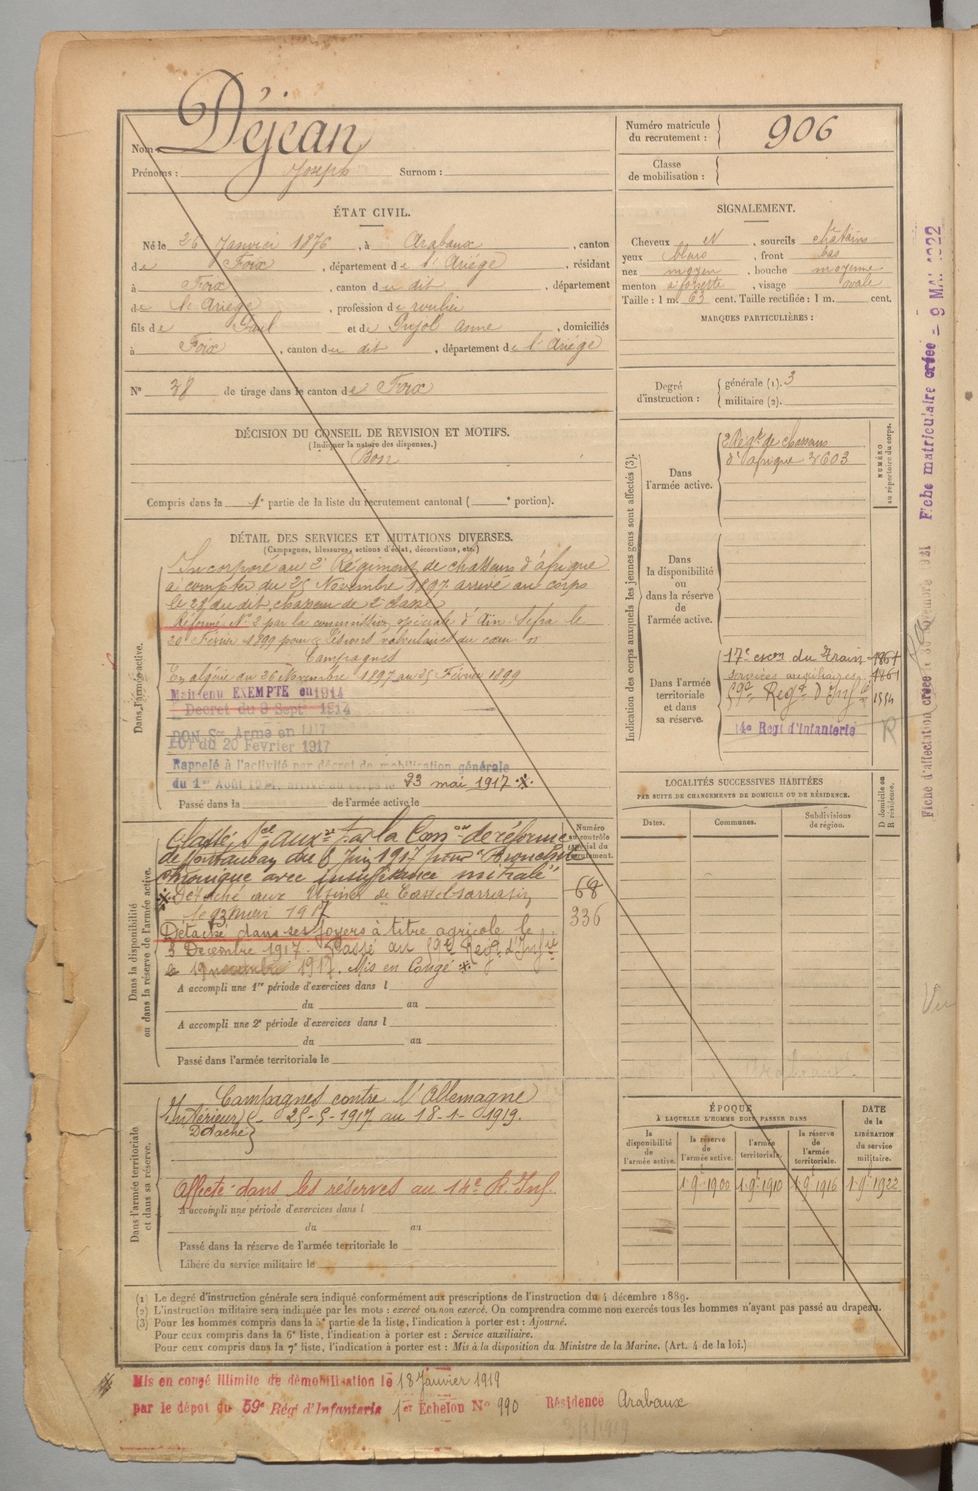 Nom : Déjean
Prénoms : Joseph Surnom :
Numéro matricule du recrutement : 906
Classe de mobilisation :
ÉTAT CIVIL.
Né le 26 Janvier 1876, à Arabaux, canton
de Foix, département de l'Ariège, résidant
à Foix, canton du dit, département
de l'Ariège, profession de roulier
fils de Paul et de Pujol Anne, domiciliés
à Foix, canton du dit, département de l'Ariège
N° 38 de tirage dans le canton de Foix
DÉCISION DU CONSEIL DE REVISION ET MOTIFS.
(Indiquer la nature des dispenses.)
Bon
Compris dans la 1e partie de la liste du recrutement cantonal ( e portion).
SIGNALEMENT.
Cheveux N, sourcils châtains
yeux bleus, front bas
nez moyen, bouche moyenne
menton à fossette, visage ovale
Taille : 1 m. 63 cent. Taille rectifiée : 1 m. cent.
MARQUES PARTICULIÈRES :
Degré d'instruction : générale (1). 3
militaire (2).
DÉTAIL DES SERVICES ET MUTATIONS DIVERSES.
(Campagnes, blessures, actions d'éclat, décorations, etc.)
Dans l'armée active.
Incorporé au 2e Régiment de chasseurs d'afrique
à compter du 25 Novembre 1897 arrivé au corps
le 28 du dit, chasseur de 2e classe
Réformé N° 2 par la commission spéciale d'Aïn Sefra le
20 Février 1899 pour "Lésions valvulaires du cœur"
Campagnes
En algérie du 26 Novembre 1897 au 25 Février 1899
Maintenu EXEMPTE en 1914
Decret du 9 Septe 1914
BON Sce Armé en 1917
LOI du 20 Février 1917
Rappelé à l'activité par décret de mobilisation générale
du 1er Août 1914, arrivé au corps le 23 mai 1917 ※
Passé dans la de l'armée active, le
Dans la disponibilité ou dans la réserve de l'armée active.
Numéro au contrôle spécial du recrutement.
Classé Sce auxre par la Con de réforme
de Montauban du 6 Juin 1917 pour "Bronchite
chronique avec insuffisance mitrale"
※ Détaché aux Usines de Castelsarrasin
le 23 mai 1917
Détaché dans ses foyers à titre agricole le
3 Décembre 1917. Passé au 59e Regt d'Infie
le 19 novembre 1917. Mis en Congé ※
68
336
A accompli une 1re période d'exercices dans l
du au
A accompli une 2e période d'exercices dans l
du au
Passé dans l'armée territoriale le
Dans l'armée territoriale et dans sa réserve.
Campagnes contre l'Allemagne
Intérieur - 25-5-1917 au 18-1-1919.
Détaché
Affecté dans les réserves au 14e R. Inf.
A accompli une période d'exercices dans l
du au
Passé dans la réserve de l'armée territoriale le
Libéré du service militaire le
Indication des corps auxquels les jeunes gens sont affectés (3).
NUMÉRO au répertoire du corps.
Dans l'armée active.
2e Régt de chasseurs
d'afrique 3603
Dans la disponibilité ou dans la réserve de l'armée active.
Dans l'armée territoriale et dans sa réserve.
17e escon du Train 1861
Services auxiliaires 1861
59e Regt d'Infie
14e Regt d'Infanterie
R
LOCALITÉS SUCCESSIVES HABITÉES
PAR SUITE DE CHANGEMENTS DE DOMICILE OU DE RÉSIDENCE.
Dates. Communes. Subdivisions de région. D domicile ou R résidence.
ÉPOQUE
À LAQUELLE L'HOMME DOIT PASSER DANS
la disponibilité de l'armée active. la réserve de l'armée active. l'armée territoriale. la réserve de l'armée territoriale. DATE de la LIBÉRATION du service militaire.
1.9bre 1900 1.9bre 1910 1.9bre 1916 1.9bre 1922
(1) Le degré d'instruction générale sera indiqué conformément aux prescriptions de l'instruction du 4 décembre 1889.
(2) L'instruction militaire sera indiquée par les mots : exercé ou non exercé. On comprendra comme non exercés tous les hommes n'ayant pas passé au drapeau.
(3) Pour les hommes compris dans la 5e partie de la liste, l'indication à porter est : Ajourné.
Pour ceux compris dans la 6e liste, l'indication à porter est : Service auxiliaire.
Pour ceux compris dans la 7e liste, l'indication à porter est : Mis à la disposition du Ministre de la Marine. (Art. 4 de la loi.)
Mis en congé illimité de démobilisation le 18 Janvier 1919
par le dépôt du 59e Rég d'Infanterie 1er Echelon N° 990 Résidence Arabaux
Fiche matriculaire créée - 9 MAI 1922
Fiche d'affectation créée